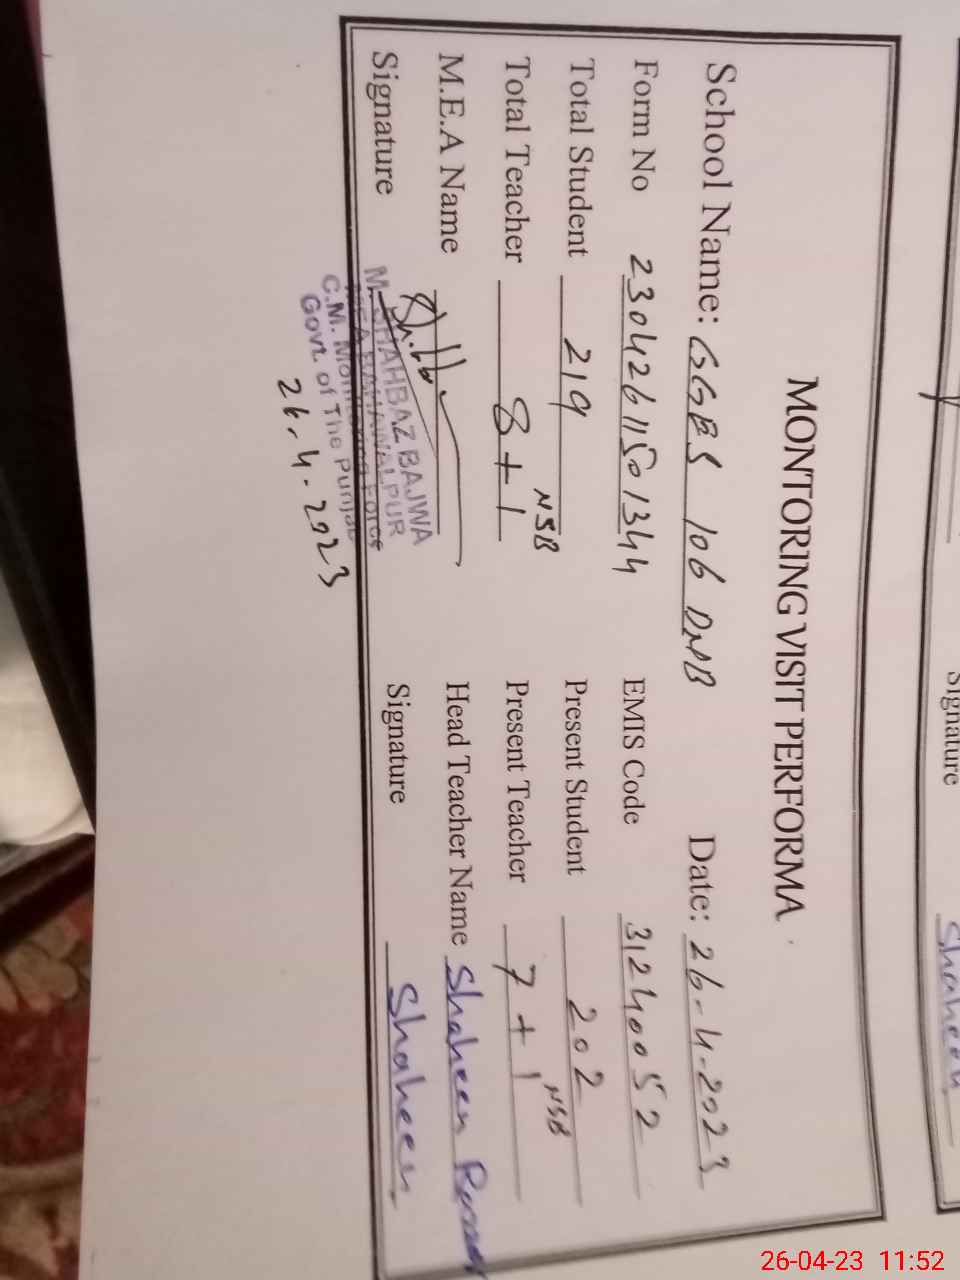 MONTORING VISIT PERFORMA
School Name: GGES 106 DNB Date: 26-4-2023
Form No 23042611501344 EMIS Code 31240052
Total Student 219 Present Student 202
Total Teacher 8+1 NSB Present Teacher 7+1 NSB
M.E.A Name Head Teacher Name Shaheen
Signature Signature Shaheen
M. SHAHBAZ BAJWA
MEA BAHAWALPUR
C.M. Monitoring Force
Govt. of The Punjab
26-4-2023
Signature Shaheen
26-04-23 11:52